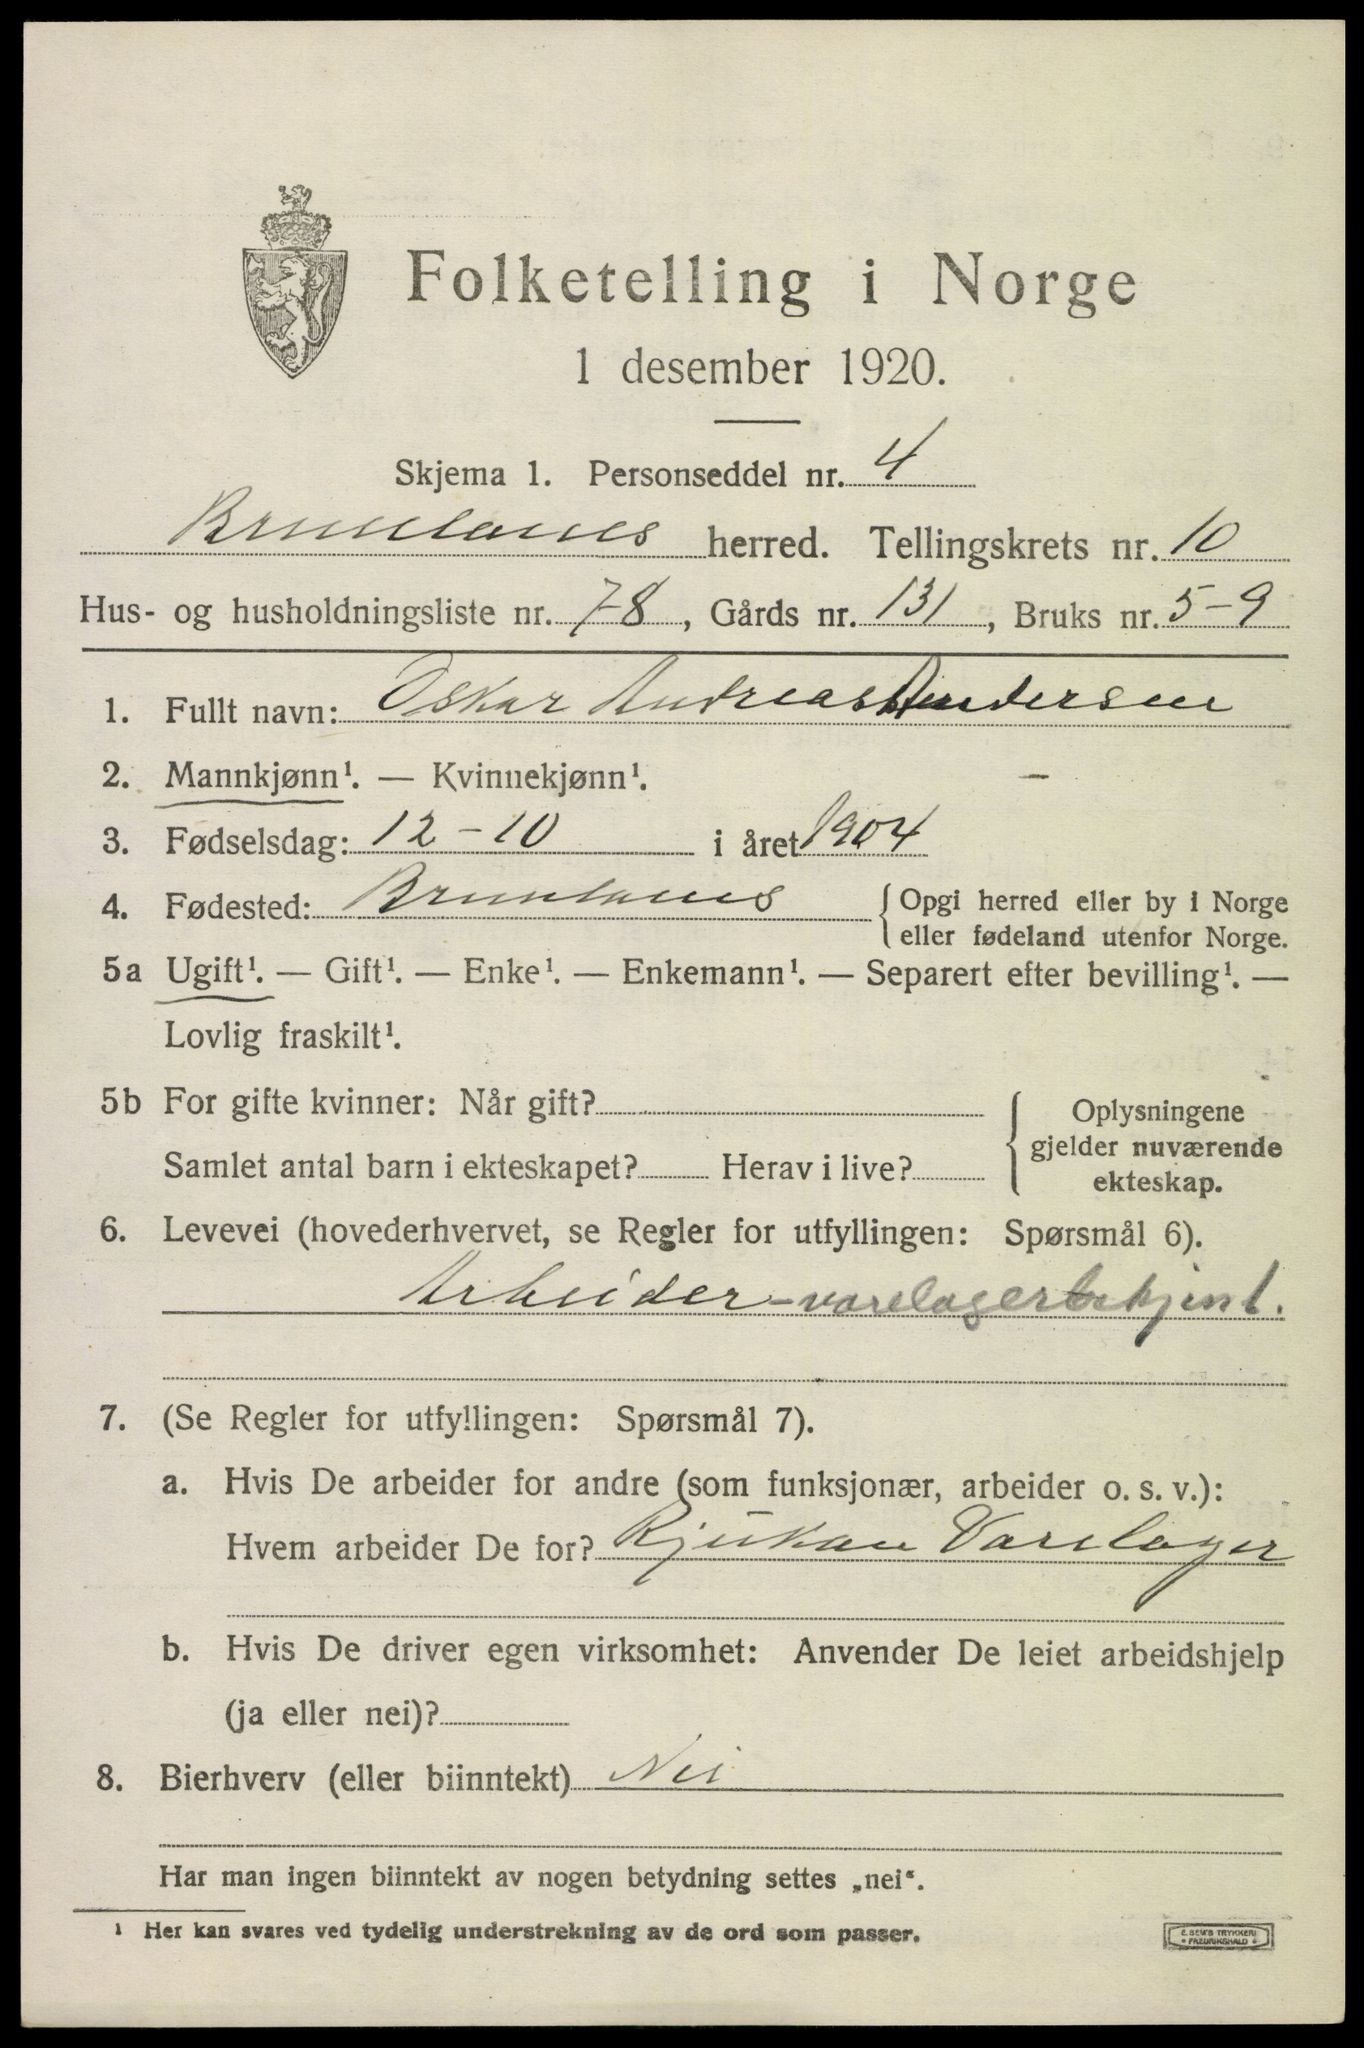 Folketelling i Norge
1 desember 1920.
Skjema 1. Personseddel nr. 4
Brunlanes herred. Tellingskrets nr. 10
Hus- og husholdningsliste nr. 7-8, Gårds nr. 131, Bruks nr. 5-9
1. Fullt navn: Oskar Andreas Andersen
2. Mannkjønn¹. — Kvinnekjønn¹. –
3. Fødselsdag: 12-10 i året 1904
4. Fødested: Brunlanes {Opgi herred eller by i Norge
eller fødeland utenfor Norge.
5a Ugift¹. — Gift¹. — Enke¹. — Enkemann¹. — Separert efter bevilling¹. —
Lovlig fraskilt¹.
5b For gifte kvinner: Når gift? Oplysningene
gjelder nuværende
Samlet antal barn i ekteskapet? Herav i live?
ekteskap.
6. Levevei (hovederhvervet, se Regler for utfyllingen: Spørsmål 6).
Arbeider-varelagerbekjent.
7. (Se Regler for utfyllingen: Spørsmål 7).
a. Hvis De arbeider for andre (som funksjonær, arbeider o. s. v.):
Hvem arbeider De for? Rjukan Varelager
b. Hvis De driver egen virksomhet: Anvender De leiet arbeidshjelp
(ja eller nei)?
8. Bierhverv (eller biinntekt) Nei
Har man ingen biinntekt av nogen betydning settes „nei“.
¹ Her kan svares ved tydelig understrekning av de ord som passer.
E. SEM'S TRYKKERI
• FREDRIKSHALD •